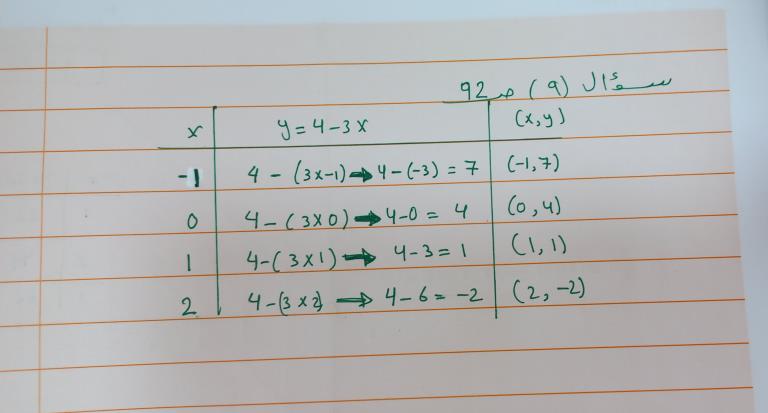 سؤال (٩) ص 92
x y = 4 - 3x (x,y)
-1 4 - (3x-1) → 4 - (-3) = 7 (-1,7)
0 4 - (3x0) → 4-0 = 4 (0,4)
1 4-(3x1) → 4-3 = 1 (1,1)
2 4-(3x2) ⇒ 4-6 = -2 (2,-2)